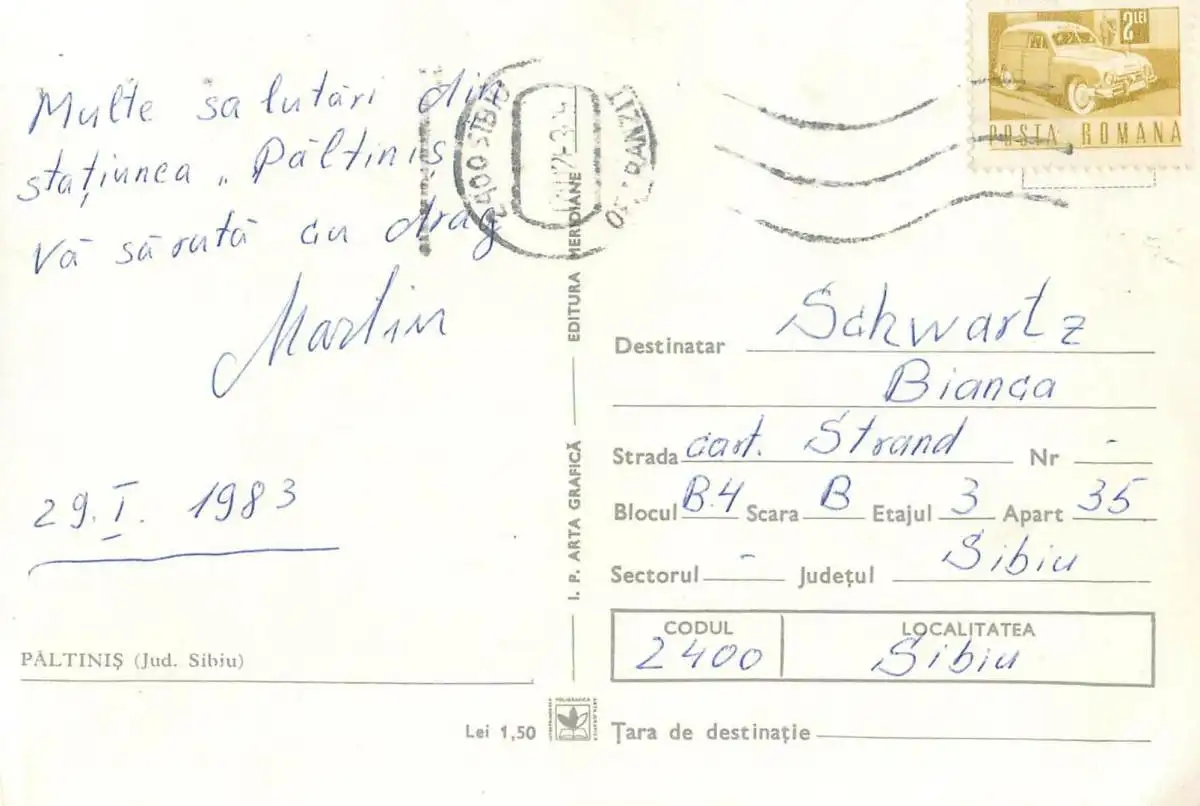 Multe salutări din
stațiunea „Păltiniș
Vă sărută cu drag
Martin
29.I. 1983
PĂLTINIȘ (Jud. Sibiu)
Lei 1,50
2400 SIBIU
I. P. ARTA GRAFICĂ
EDITURA MERIDIANE
2 LEI
POSTA ROMANA
Destinatar Schwartz
Bianca
Strada cart. Strand Nr -
Blocul B.4 Scara B Etajul 3 Apart 35
Sectorul - Județul Sibiu
CODUL LOCALITATEA
2400 Sibiu
Țara de destinație